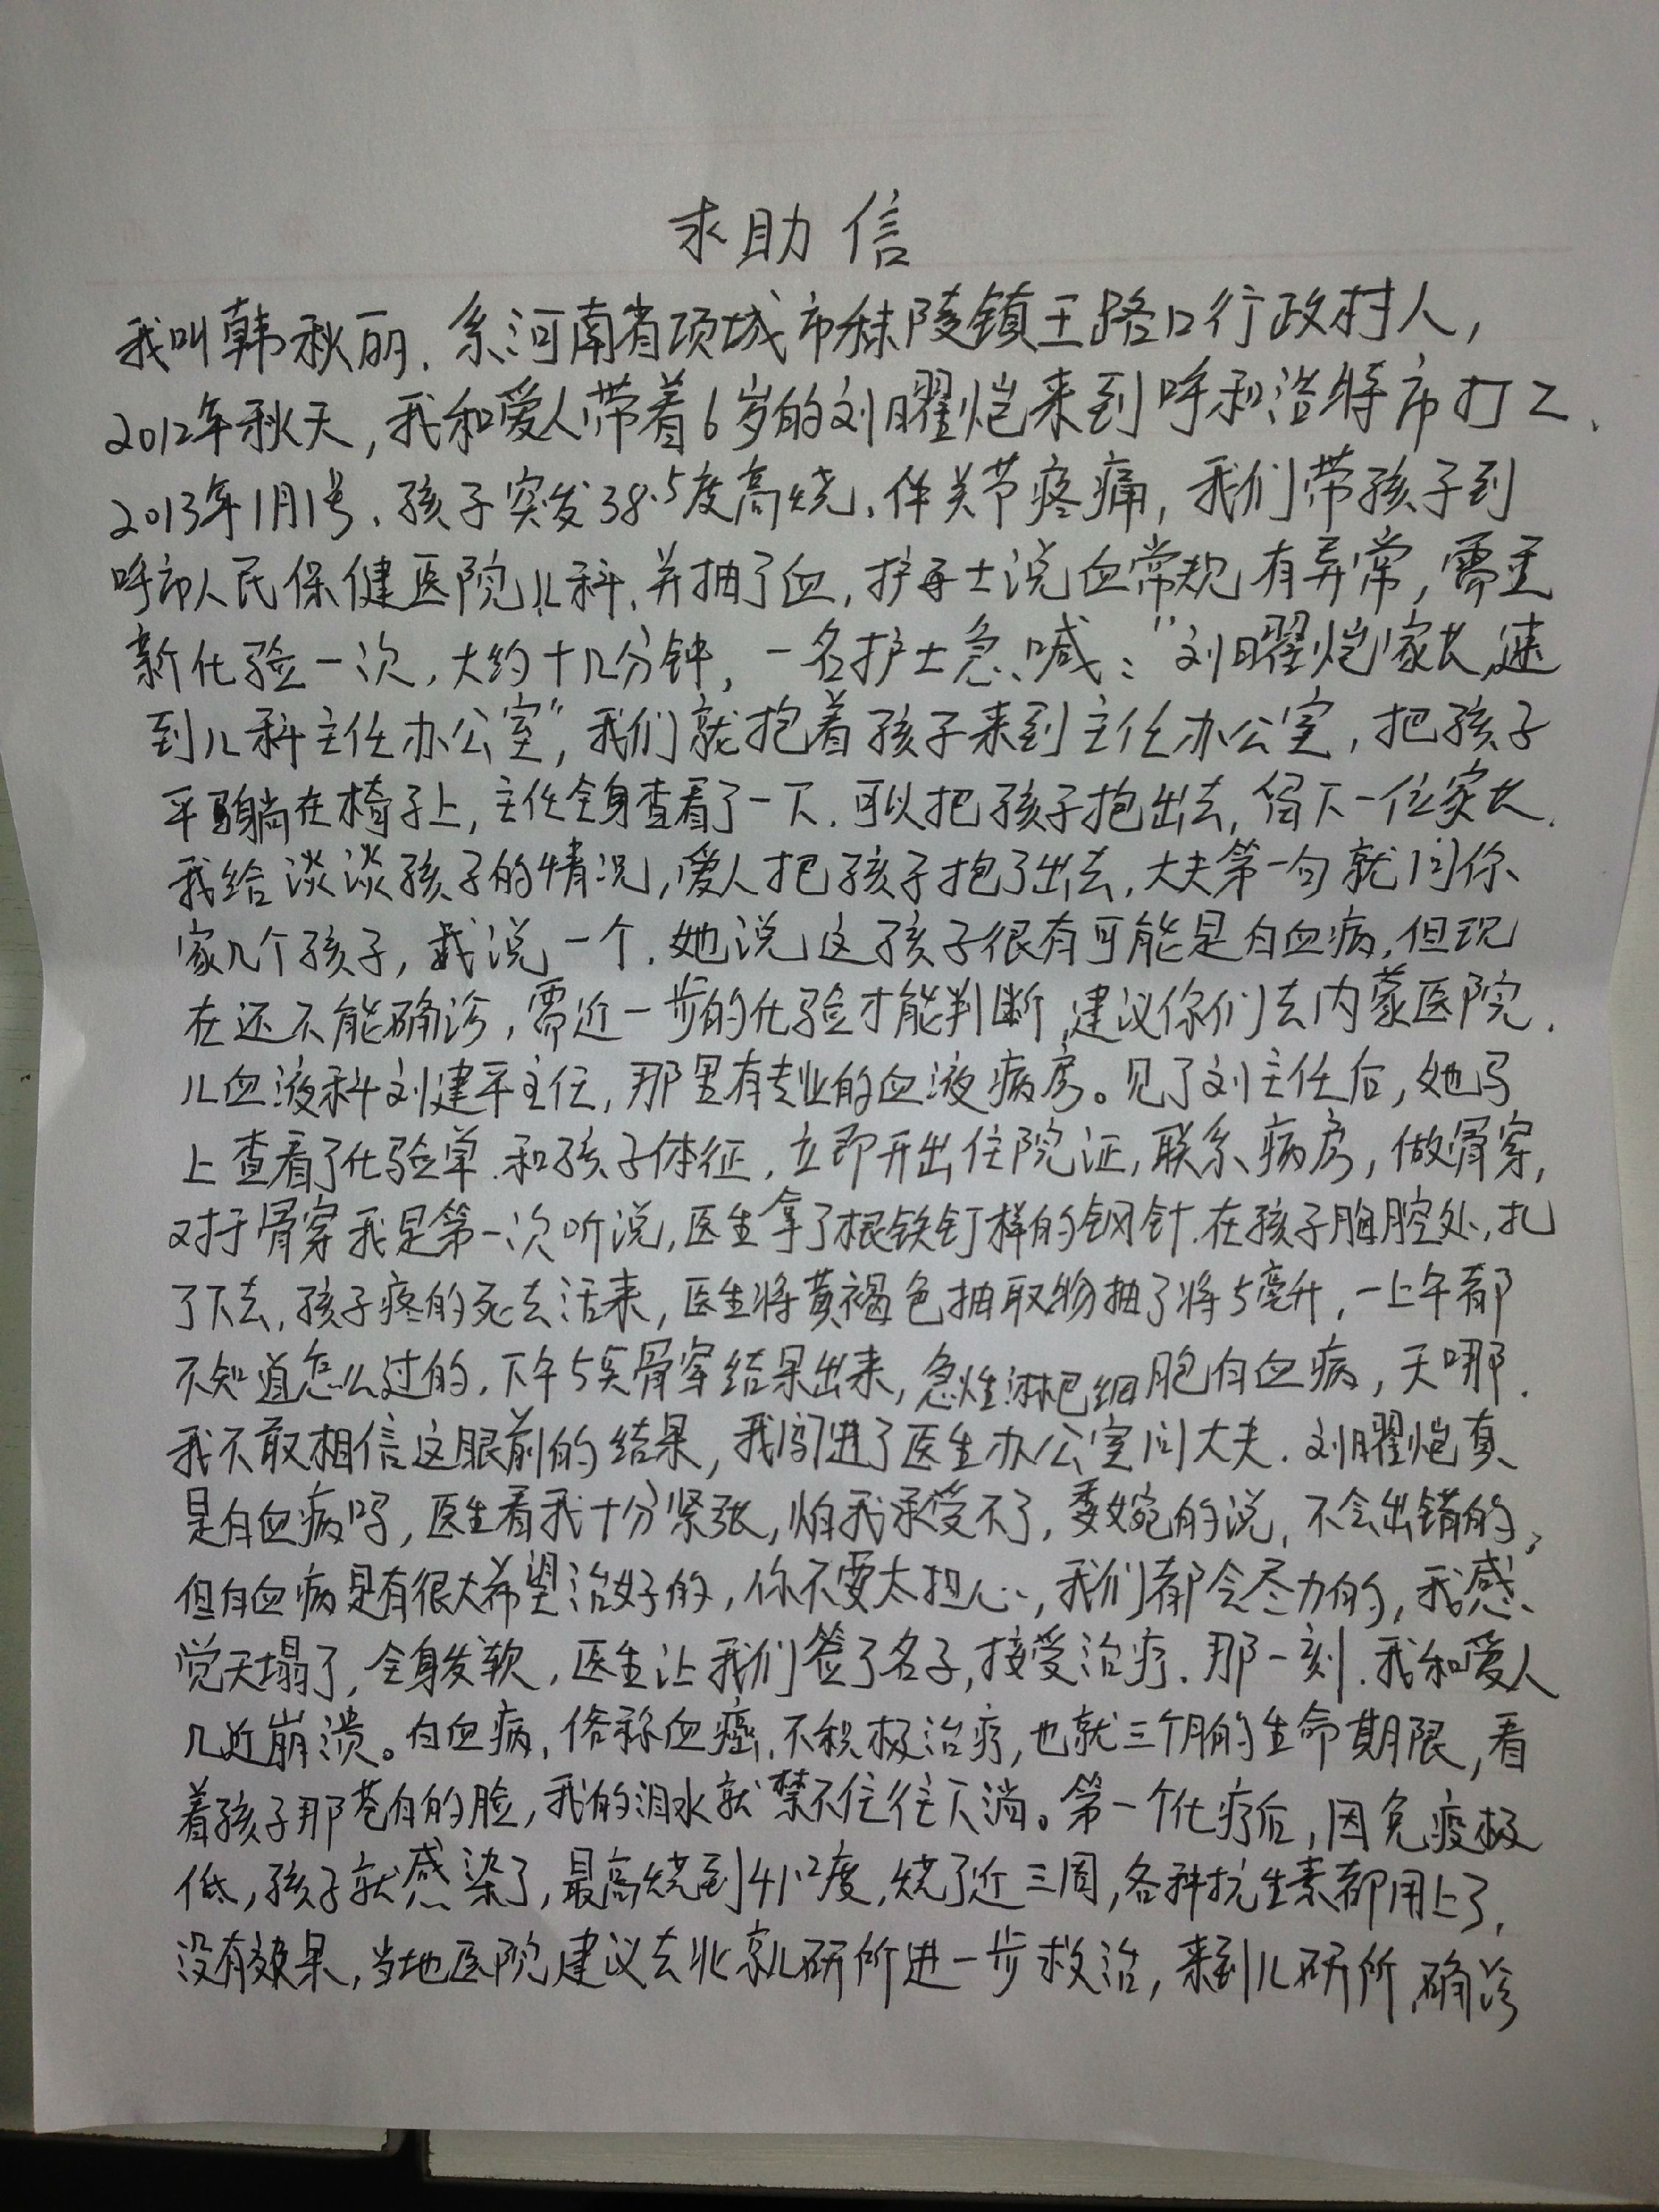 求助信
我叫韩秋丽.系河南省项城市秣陵镇王路口行政村人,
2012年秋天,我和爱人带着6岁的刘曜恺来到呼和浩特市打工、
2013年1月1号、孩子突发38.5度高烧、伴关节疼痛,我们带孩子到
呼市人民保健医院儿科、并抽了血,护士说血常规有异常,需重
新化验一次,大约十几分钟,一名护士急喊:“刘曜恺家长,速
到儿科主任办公室”,我们就抱着孩子来到主任办公室,把孩子
平躺在椅子上,主任全身查看了一下.可以把孩子抱出去,留下一位家长.
我给谈谈孩子的情况,爱人把孩子抱了出去,大夫第一句就问你
家几个孩子,我说一个.她说这孩子很有可能是白血病,但现
在还不能确诊,需近一步的化验才能判断,建议你们去内蒙医院.
儿血液科刘建平主任,那里有专业的血液病房。见了刘主任后,她马
上查看了化验单.和孩子体征,立即开出住院证,联系病房,做骨穿,
对于骨穿我是第一次听说,医生拿了根铁钉样的钢针.在孩子胸腔处,扎
了下去,孩子疼的死去活来,医生将黄褐色抽取物抽了将5毫升,一上午都
不知道怎么过的,下午5点骨穿结果出来,急性淋巴细胞白血病,天哪.
我不敢相信这眼前的结果,我闯进了医生办公室问大夫.刘曜恺真
是白血病吗,医生看我十分紧张,怕我承受不了,委婉的说,不会出错的,
但白血病是有很大希望治好的,你不要太担心,我们都会尽力的,我感
觉天塌了,全身发软,医生让我们签了名子,接受治疗.那一刻.我和爱人
几近崩溃。白血病,俗称血癌,不积极治疗,也就三个月的生命期限,看
着孩子那苍白的脸,我的泪水就禁不住往下淌。第一个化疗后,因免疫极
低,孩子就感染了,最高烧到41.2度,烧了近三周,各种抗生素都用上了,
没有效果,当地医院建议去北京儿研所进一步救治,来到儿研所,确诊